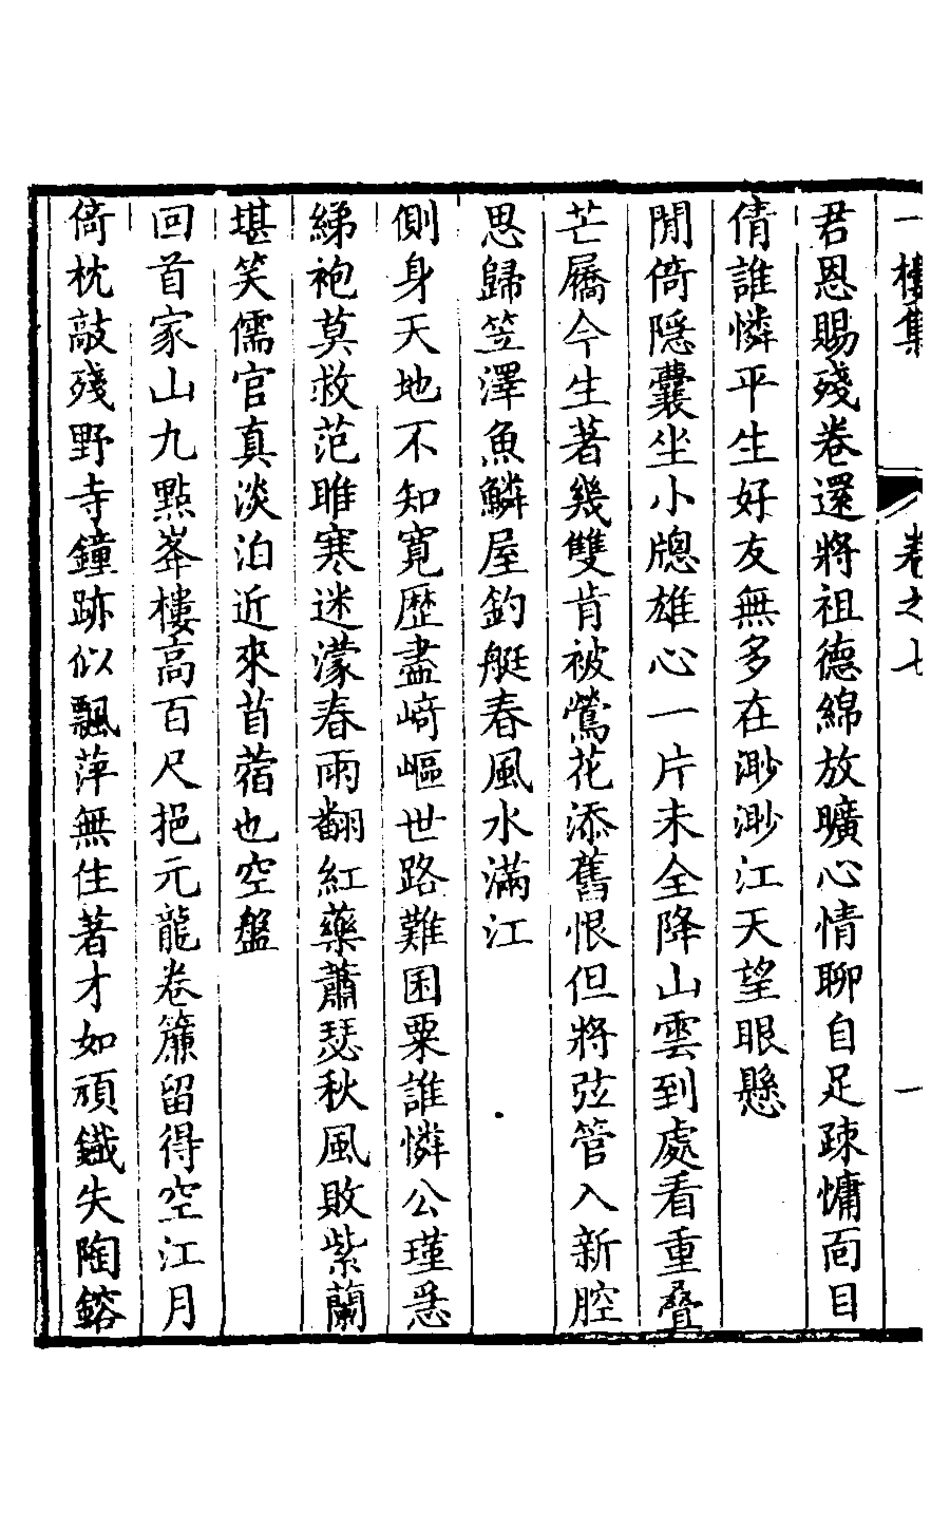 一樓集 卷之七 一
君恩賜殘卷還將祖德綿放曠心情聊自足疎慵面目
倩誰憐平生好友無多在渺渺江天望眼懸
閒倚隱囊坐小牕雄心一片未全降山雲到處看重疊
芒屩今生著幾雙肯被鶯花添舊恨但將弦管入新腔
思歸笠澤魚鱗屋釣艇春風水滿江
側身天地不知寛歷盡崎嶇世路難囷粟誰憐公瑾惡
綈袍莫救范雎寒迷濛春雨翻紅藥蕭瑟秋風敗紫蘭
堪笑儒官真淡泊近來苜蓿也空盤
回首家山九點峯樓高百尺挹元龍卷簾留得空江月
倚枕敲殘野寺鐘跡似飄萍無住著才如頑鐵失陶鎔